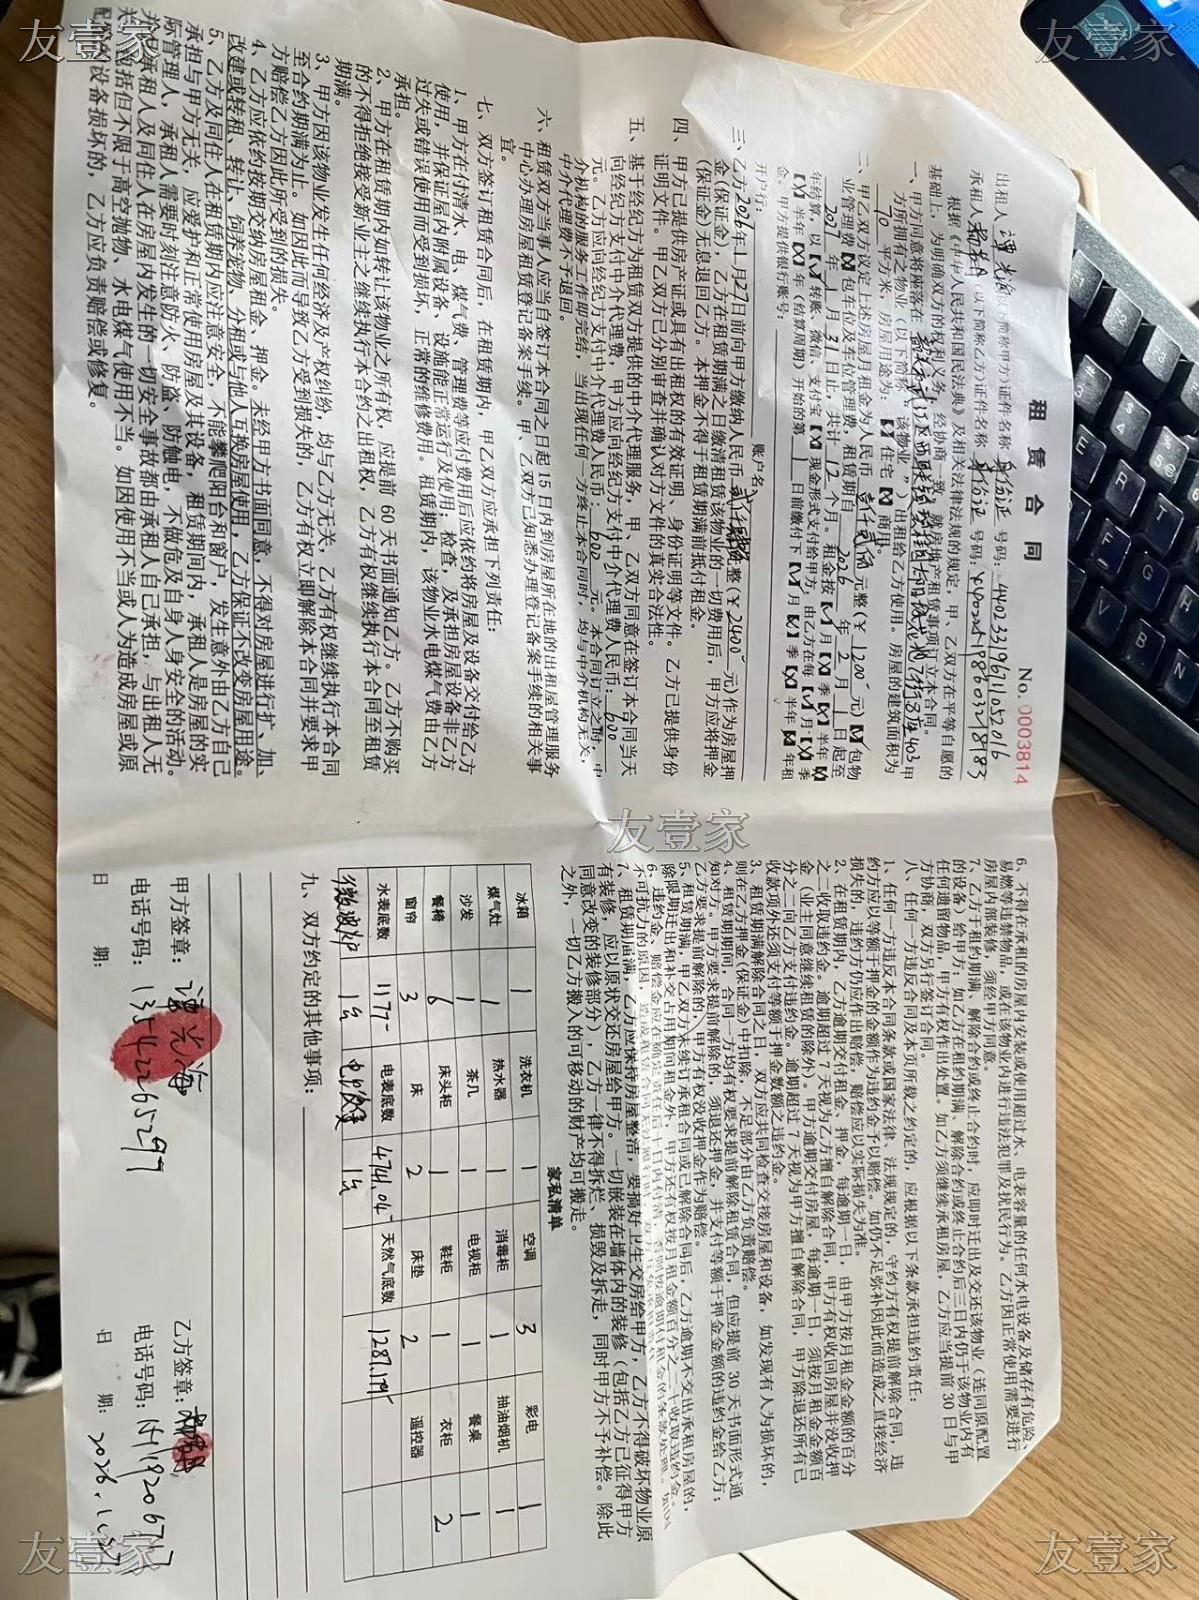 友壹家
友壹家
租赁合同
No. 0003814
出租人 谭光海(以下简称甲方)证件名称 身份证 号码: 440233196711032016
承租人 (以下简称乙方)证件名称 身份证 号码:
根据《中华人民共和国民法典》及相关法律法规的规定,甲、乙双方在平等自愿的
基础上,为明确双方的权利义务,经协商一致,就房地产租赁事项订立本合同。
一、甲方同意将座落在 403 甲
方所拥有之物业(以下简称“该物业”)出租给乙方使用。房屋的建筑面积为
70 平方米,房屋用途为:【 】住宅【 】商用。
二、甲乙双方议定上述房屋月租金为人民币 壹仟贰佰 元整(¥ 1200 元)【 】包物
业管理费【 】包车位及车位管理费,租赁期自 2026 年 2 月 1 日起至
2027 年 1 月 31 日止,共计 12 个月。租金按【 】月【 】季【 】半年【 】
年结算,以【 】转账、微信、支付宝【 】现金形式支付给甲方,由乙方在每【 】月【 】季
【 】半年【 】年(结算周期)开始的第 1 日前缴付下【 】月【 】季【 】半年【 】年租
金。甲方提供银行账号:
开户行: 账户名:
三、乙方2026年1月27日前向甲方缴纳人民币 整(¥ 2400 元)作为房屋押
金(保证金),乙方在租赁期满之日缴清租赁该物业的一切费用后,甲方应将押金
(保证金)无息退回乙方。本押金不得于租赁期满前抵付租金。
四、甲方已提供房产证或具有出租权的有效证明、身份证明等文件。乙方已提供身份
证明文件。甲乙双方已分别审查并确认对方文件的真实合法性。
五、基于经纪方为租赁双方提供的中介代理服务,甲、乙双方同意在签订本合同当天
向经纪方支付中介代理费,甲方应向经纪方支付中介代理费人民币: 600
元。乙方应向经纪方支付中介代理费人民币: 600 元。本合同订立之时,中
介机构的服务工作即完结,当出现任何一方终止本合同时,均与中介机构无关,
中介代理费不予退回。
六、租赁双方当事人应当自签订本合同之日起15日内到房屋所在地的出租屋管理服务
中心办理房屋租赁登记备案手续。甲、乙双方已知悉办理登记备案手续的相关事
宜。
七、双方签订租赁合同后,在租赁期内,甲乙双方应承担下列责任:
1、甲方在付清水、电、煤气费、管理费等应付费用后应依约将房屋及设备交付给乙方
使用,并保证屋内附属设备、设施能正常运行及使用;检查,及承担房屋设备非乙方
过失或错误使用而受到损坏,正常的维修费用。租赁期内,该物业水电煤气费由乙方
承担。
2、甲方在租赁期内如转让该物业之所有权,应提前 60 天书面通知乙方。乙方不购买
的不得拒绝接受新业主之继续执行本合约之出租权,乙方有权继续执行本合同至租赁
期满。
3、甲方因该物业发生任何经济及产权纠纷,均与乙方无关,乙方有权继续执行本合同
至合约期满为止。如因此而导致乙方受到损失的,乙方有权立即解除本合同并要求甲
方赔偿乙方因此所受到的损失。
4、乙方应依约按期交纳房屋租金,押金。未经甲方书面同意,不得对房屋进行扩、加、
改建或转租、转让、饲养宠物、分租或与他人互换房屋使用,乙方保证不改变房屋用途。
5、乙方及同住人在租赁期内应注意安全,不能攀爬阳台和窗户,发生意外由乙方自己
承担与甲方无关,应爱护和正常使用房屋及其设备,租赁期间内,承租人是房屋的实
际管理人,承租人需要时刻注意防火、防盗、防触电,不做危及自身人身安全的活动。
承租人及同住人在房屋内发生的一切安全事故都由承租人自己承担,与出租人无
关,包括但不限于高空抛物、水电煤气使用不当。如因使用不当或人为造成房屋或原
配置的设备损坏的,乙方应负责赔偿或修复。
友壹家
6、不得在承租的房屋内安装或使用超过水、电表容量的任何水电设备及储存有危险、
易燃等违禁物品,或在该物业内进行违法犯罪及扰民行为。乙方因正常使用需要进行
房屋内部装修,须经甲方同意。
7、乙方于租约期满、解除合约或终止合约时,应即时迁出及交还该物业(连同原配置
的设备)给甲方;如乙方在租约期满、解除合约或终止合约后三日内仍于该物业内有
任何遗留物品,甲方有权作出处置。如乙方须继续承租房屋,乙方应当提前 30 日与甲
方协商,双方另行签订合同。
八、任何一方违反合同及本页所载之约定的,应根据以下条款承担违约责任:
1、任何一方违反本合同条款或国家法律、法规规定的,守约方有权提前解除合同,违
约方应以等额于押金的金额作为违约金予以赔偿。如仍不足弥补因此而造成之直接经济
损失的,违约方仍应作出赔偿,赔偿应以实际损失为准。
2、在租赁期内,乙方逾期交付租金、押金,每逾期一日,由甲方按月租金金额的百分
之二收取违约金。逾期超过 7 天视为乙方擅自解除合同,甲方有权收回房屋并没收押
金(业主同意继续租赁的除外)。甲方逾期交付房屋,每逾期一日,须按月租金金额百
分之二向乙方支付违约金。逾期超过 7 天视为甲方擅自解除合同,甲方除退还所有已
收款项外还须支付等额于押金数额之违约金。
3、租赁期满解除合同之日,双方应共同检查交接房屋和设备,如发现有人为损坏的,
则在乙方押金(保证金)中扣除,不足部分由乙方负责赔偿。
4、租赁期期间,合同一方均有权要求提前解除租赁合同,但应提前 30 天书面形式通
知对方。甲方要求提前解除的,须退还押金,并支付等额于押金金额的违约金给乙方;
乙方要求提前解除的,甲方有权没收押金作为赔偿。
5、租赁期满,甲乙双方未续订承租合同或已解除合同后,乙方逾期不交出承租房屋的,
除限期迁出和补交占用期间租金外,甲方还有权按月租金额百分之二十收取违约金。
6、违约金、赔偿金应在确定责任后十日内付清,否则按逾期付租金的条款处理。如因
不可抗力的原因,造成
7、租赁期届满,乙方应保持房屋整洁,要搞好卫生交房给甲方,乙方不得破坏物业原
有装修,应以原状交还房屋给甲方。一切嵌装在墙体内的装修(包括乙方已征得甲方
同意改变的装修部分),乙方一律不得拆烂、损毁及拆走,同时甲方不予补偿。除此
之外,一切乙方搬入的可移动的财产均可搬走。
家私清单
冰箱 1 洗衣机 1 空调 3 彩电 1
煤气灶 1 热水器 1 消毒柜 1 抽油烟机 1
沙发 1 茶几 1 电视柜 1 餐桌 1
餐椅 6 床头柜 1 鞋柜 1 衣柜 2
窗帘 3 床 2 床垫 2 遥控器
水表底数 1177 电表底数 4741.04 天然气底数 1281.175
微波炉 1台 1台
九、双方约定的其他事项:
甲方签章: 谭光海 乙方签章:
电话号码: 13542226529 电话号码:
日 期: 日 期: 2026.1.27
友壹家
友壹家